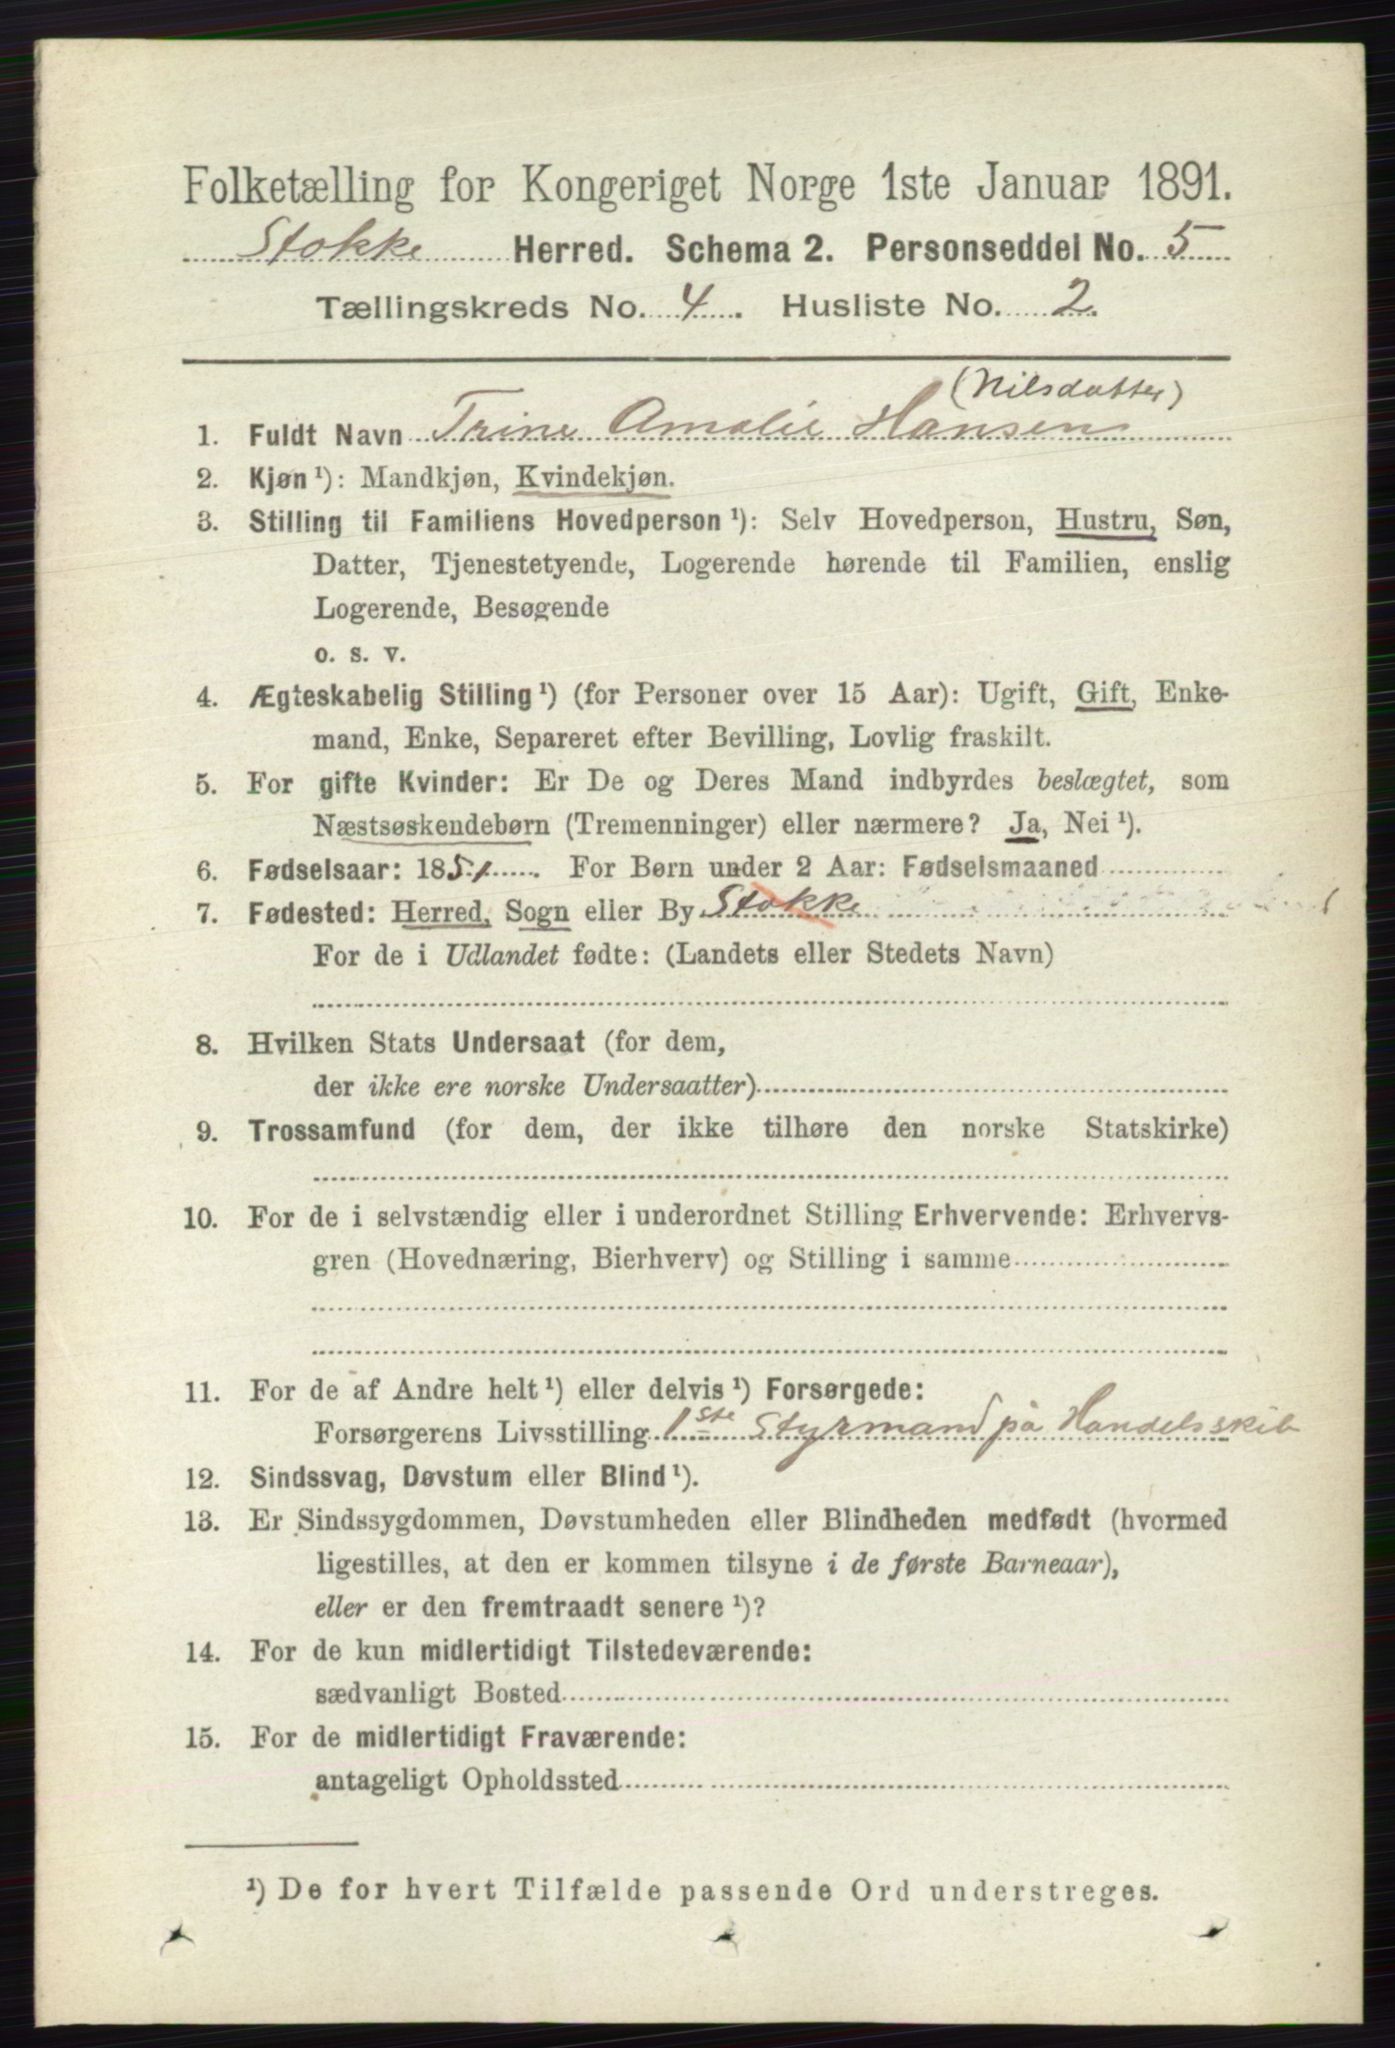 Folketælling for Kongeriget Norge 1ste Januar 1891.
Stokke Herred. Schema 2. Personseddel No. 5
Tællingskreds No. 4. Husliste No. 2.
(Nilsdatter)
1. Fuldt Navn Trine Amalie Hansen
2. Kjøn ¹): Mandkjøn, Kvindekjøn.
3. Stilling til Familiens Hovedperson ¹): Selv Hovedperson, Hustru, Søn,
Datter, Tjenestetyende, Logerende hørende til Familien, enslig
Logerende, Besøgende
o. s. v.
4. Ægteskabelig Stilling ¹) (for Personer over 15 Aar): Ugift, Gift, Enke-
mand, Enke, Separeret efter Bevilling, Lovlig fraskilt.
5. For gifte Kvinder: Er De og Deres Mand indbyrdes beslægtet, som
Næstsøskendebørn (Tremenninger) eller nærmere? Ja, Nei ¹).
6. Fødselsaar: 1851. For Børn under 2 Aar: Fødselsmaaned
7. Fødested: Herred, Sogn eller By Stokke
For de i Udlandet fødte: (Landets eller Stedets Navn)
8. Hvilken Stats Undersaat (for dem,
der ikke ere norske Undersaatter)
9. Trossamfund (for dem, der ikke tilhøre den norske Statskirke)
10. For de i selvstændig eller i underordnet Stilling Erhvervende: Erhvervs-
gren (Hovednæring, Bierhverv) og Stilling i samme
11. For de af Andre helt ¹) eller delvis ¹) Forsørgede:
Forsørgerens Livsstilling 1ste Styrmand på Handelsskib
12. Sindssvag, Døvstum eller Blind ¹).
13. Er Sindssygdommen, Døvstumheden eller Blindheden medfødt (hvormed
ligestilles, at den er kommen tilsyne i de første Barneaar),
eller er den fremtraadt senere ¹)?
14. For de kun midlertidigt Tilstedeværende:
sædvanligt Bosted
15. For de midlertidigt Fraværende:
antageligt Opholdssted
¹) De for hvert Tilfælde passende Ord understreges.